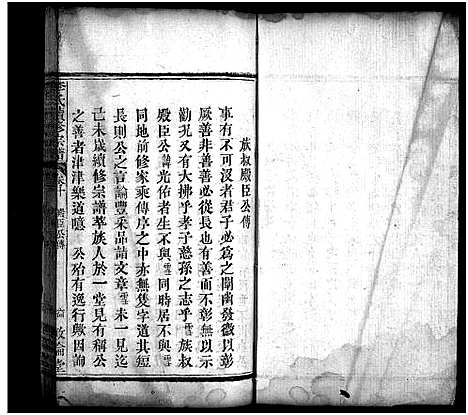 族叔殿臣公傳
事有不可沒者君子必為之闡幽發微以彰
厥善非善善必從長也有善而不彰無以示
勸況又有大拂乎孝子慈孫之志乎雲族叔
殿臣公諱光佑者生不與雲同時居不與雲
同地前修家乘傳序之中亦無隻字道其短
長則公之言論豐采品詣文章雲未一見迄
己未歲續修宗譜萃族人於一堂見有稱公
之善者津津樂道噫 公殆有逸行歟因詢
李氏續修宗譜 卷十 殿臣公傳 敦倫堂